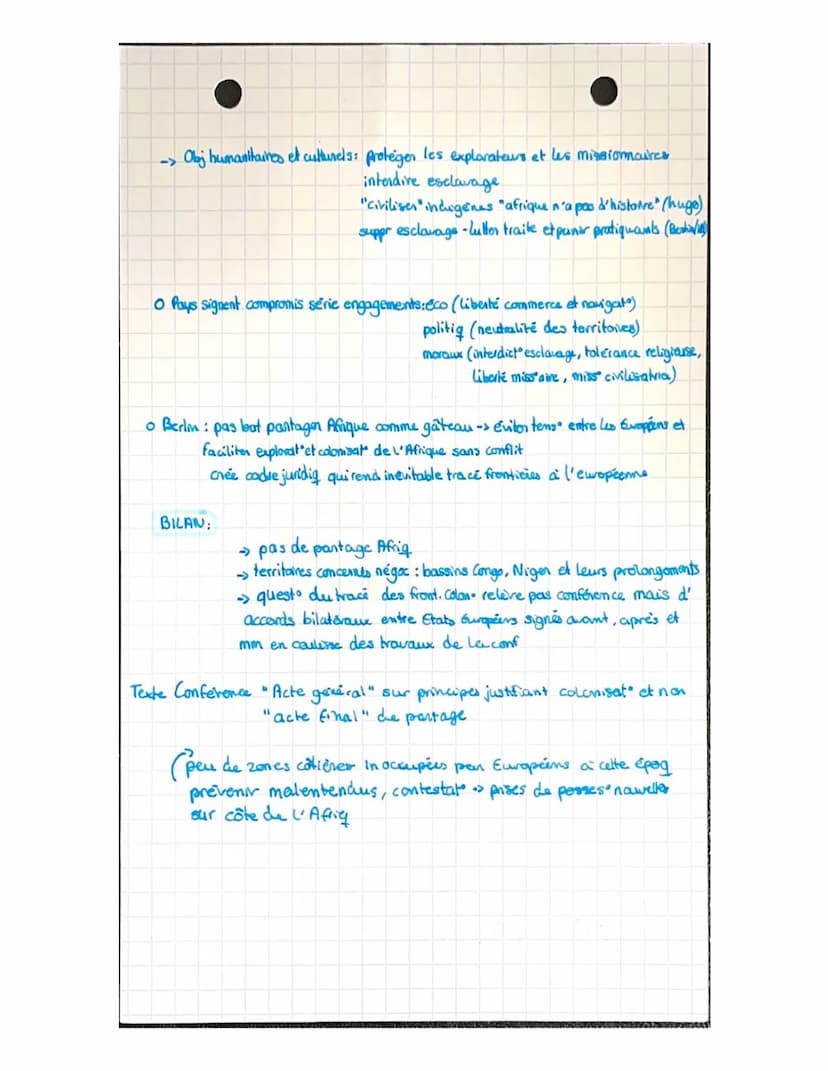 -> Obj humanitaires et culturels: protéger les explorateurs et les missionnaires
interdire esclavage
"civiliser" indigènes "afrique n'a pas d'histoire" (hugo)
suppr esclavage - lutter traite et punir pratiquants
O Pays signent compromis série engagements: éco (liberté commerce et navigat°)
politiq (neutralité des territoires)
moraux (interdict° esclavage, tolérance religieuse,
liberté miss°aire, miss° civilisatria)
O Berlin : pas but partager Afrique comme gâteau -> éviter tens° entre les Européens et
faciliter explorat° et colonisat° de l'Afrique sans conflit
crée cadre juridiq qui rend inévitable tracé frontières à l'européenne
BILAN:
-> pas de partage Afriq
-> territoires concernés négoc : bassins Congo, Niger et leurs prolongements
-> quest° du tracé des front. colon. relève pas conférence mais d'
accords bilatéraux entre Etats Européens signés avant, après et
mm en coulisse des travaux de la conf
Texte Conférence "Acte général" sur principes justifiant colonisat° et non
"acte final" de partage
(peu de zones côtières inoccupées par Européens à cette époq
prévenir malentendus, contestat° -> prises de posses° nouvelles
sur côte de l'Afriq